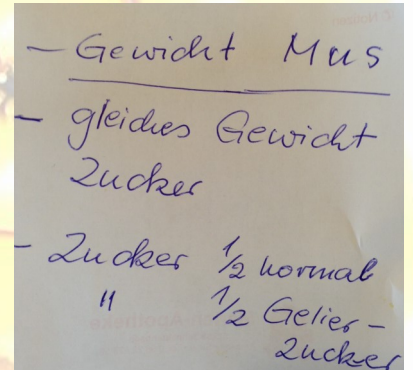 - Gewicht Mus
- gleiches Gewicht
Zucker
- Zucker 1/2 normal
" 1/2 Gelier-
Zucker